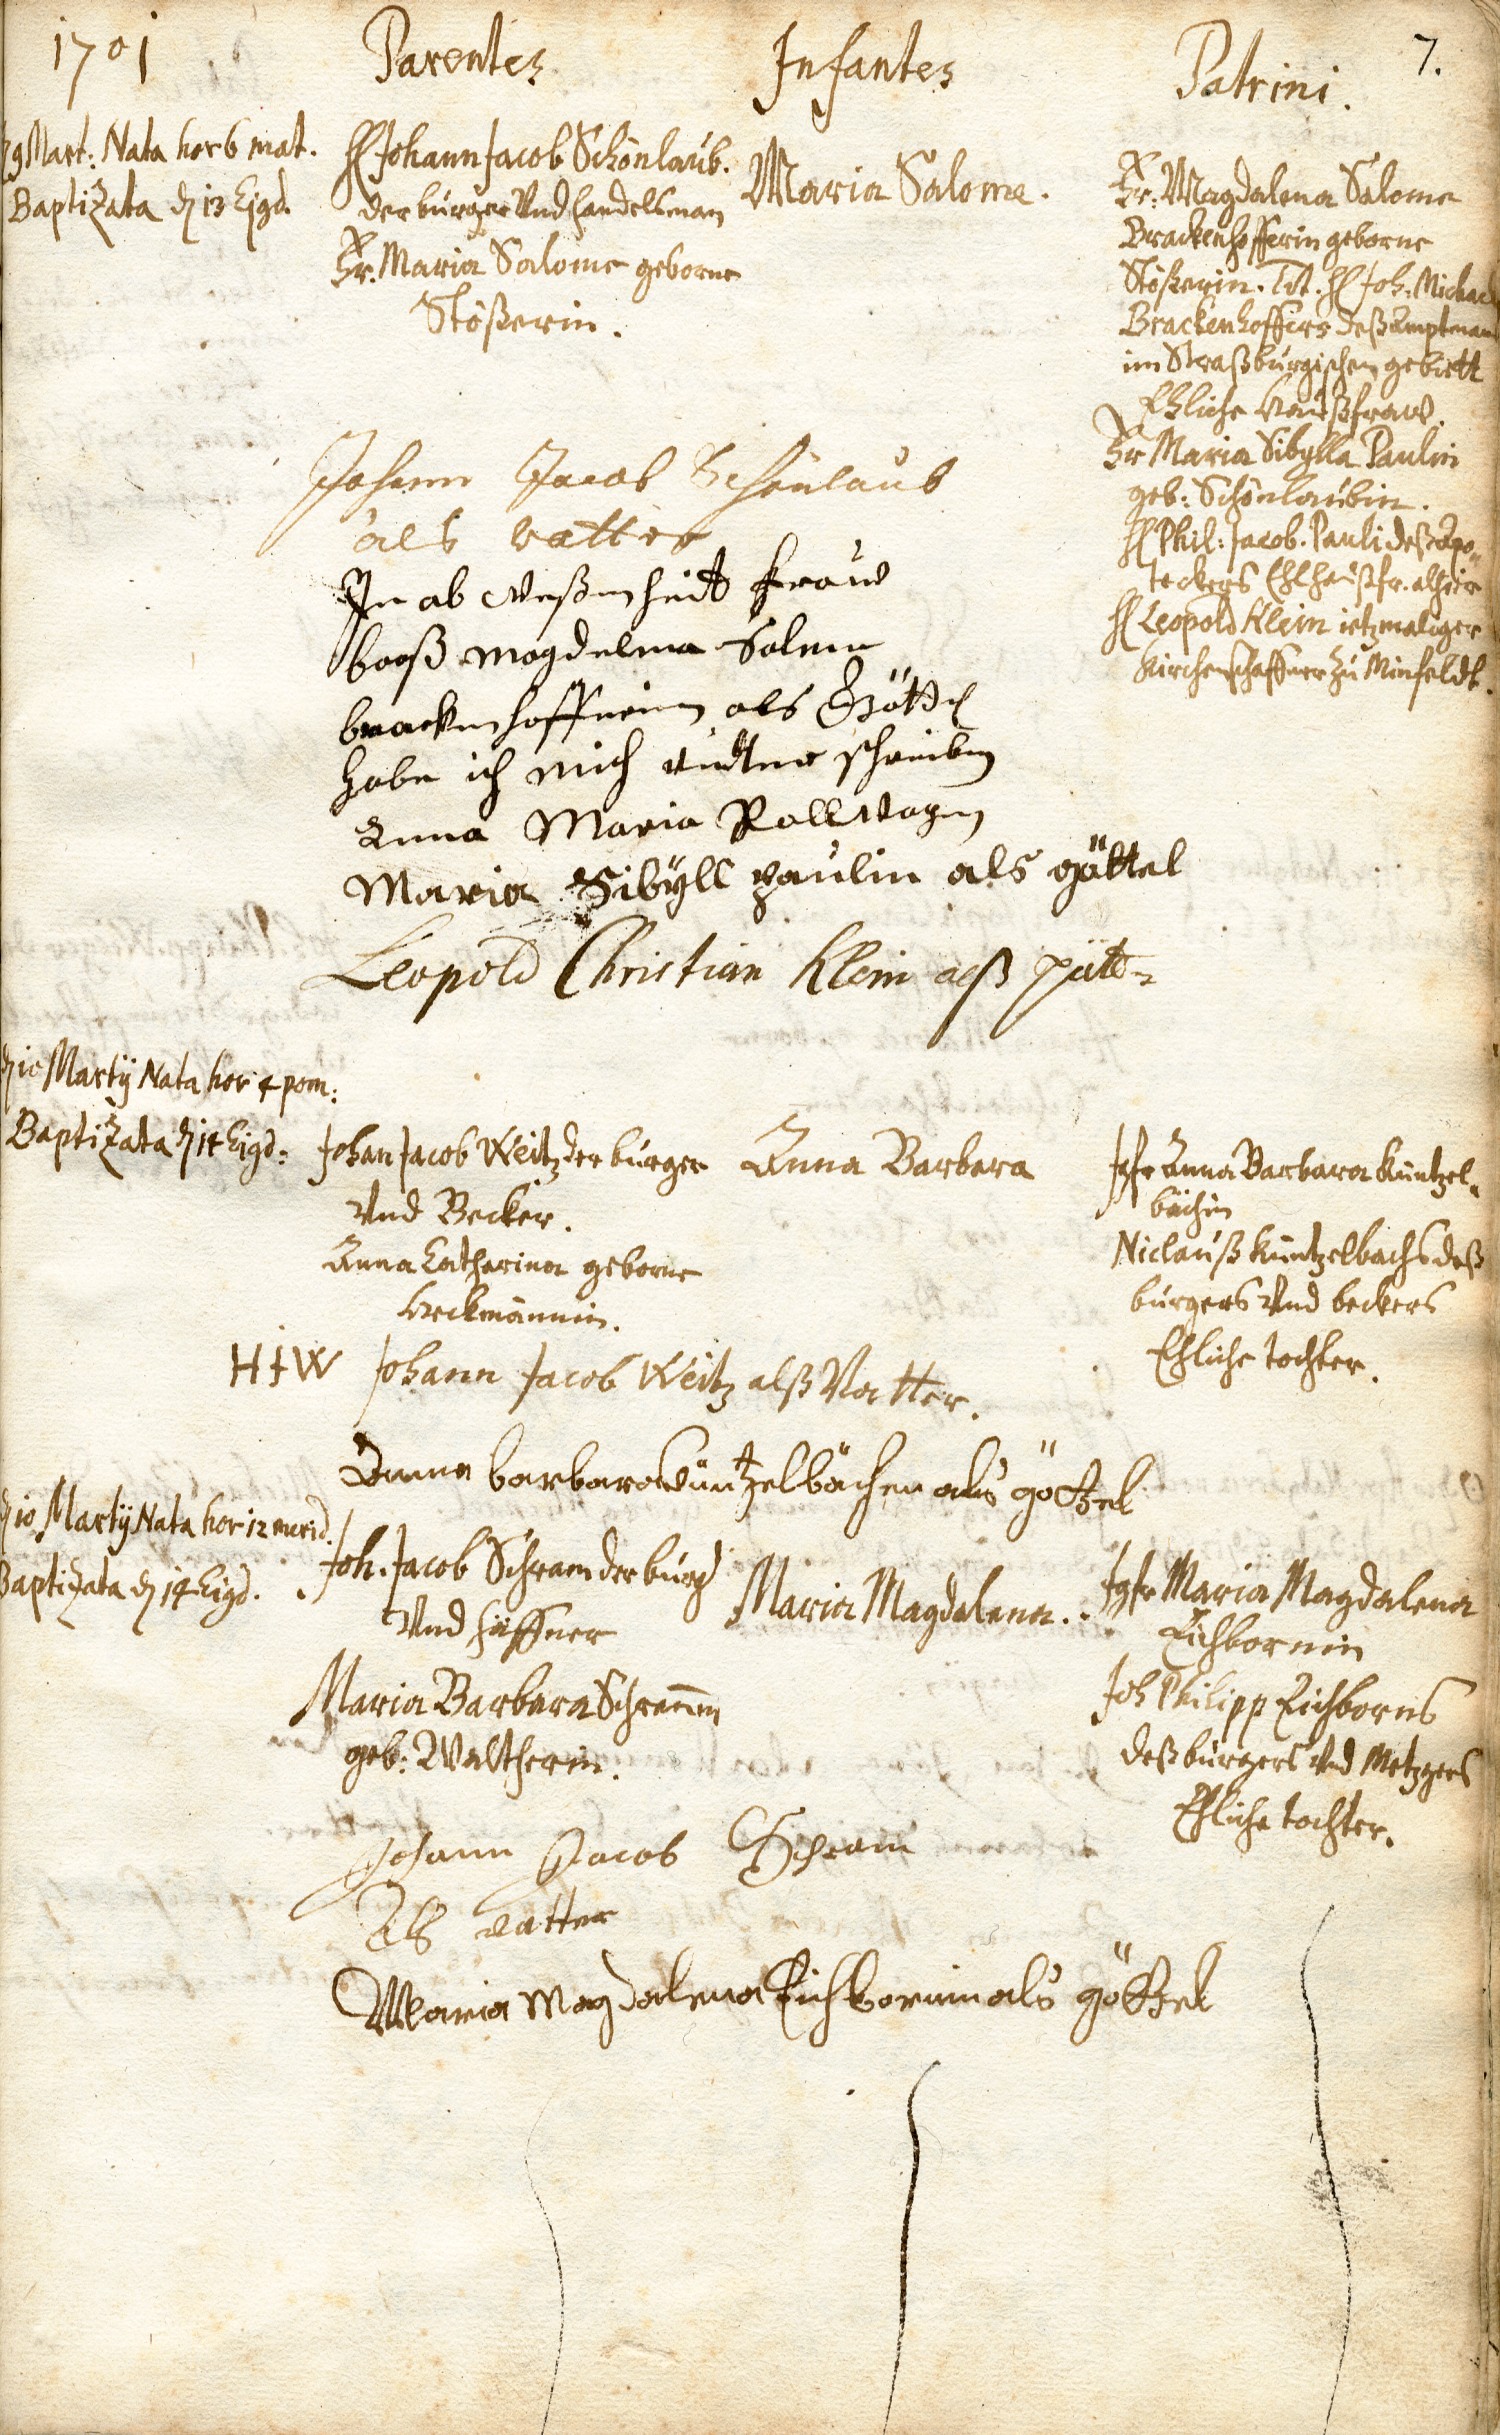 1701
Parentes
Infantes
Patrini.
7.
9 Mart: Nata hor 6 mat.
Baptizata d 13 Eisd.
H Johann Jacob Schönlaub.
der burger Vnd handelsman
Fr. Maria Salome geborne
Stößerin.
Maria Salome.
Fr. Magdalena Salome
Brackenhofferin geborne
Stößerin. Tit. H Joh. Michael
Brackenhoffers deß Amptman
im Straßburgischen gebiett
Ehliche haußfraw.
Fr Maria Sibylla Paulin
geb: Schönlaubin.
H Phil: Jacob. Pauli deß Apo-
teckers Ehl haußfr. alhier
H Leopold Klein ietzmaliger
Kirchenschaffner zu Minfeldt.
Johann Jacob Schönlaub
als vatter
In ab weßenheit fraw
baaß magdelena Salme
brackenhofferin als Göttel
habe ich mich unter schreiben
Anna Maria Rollwagen
Maria Sibÿll paulin als göttel
Leopold Christian Klein alß pätter
d 10 Martÿ Nata hor 4 pom:
Baptizata d 14 Eisd:
Johan Jacob Weitz der burger
Vnd Becker.
Anna Catharina geborne
Heckmännin.
Anna Barbara
Jgfr Anna Barbara Küntzel-
bächin
Niclauß Küntzelbachs deß
burgers Vnd beckers
Ehliche tochter.
HJW Johann Jacob Weitz alß Vatter.
Anna barbara küntzelbächen als göttel
d 10 Martÿ Nata hor 12 merid.
Baptizata d 14 Eisd.
Joh. Jacob Schram der burg
Vnd häffner
Maria Barbara Schramen
geb: Waltherin.
Maria Magdalena.
Jgfr Maria Magdalena
Eichbornin
Joh Philipp Eichborns
deß burgers Vnd Metzgers
Ehliche tochter.
Johann Jacob Schram
Als vatter
Maria Magdalena Eichbornin als göttel